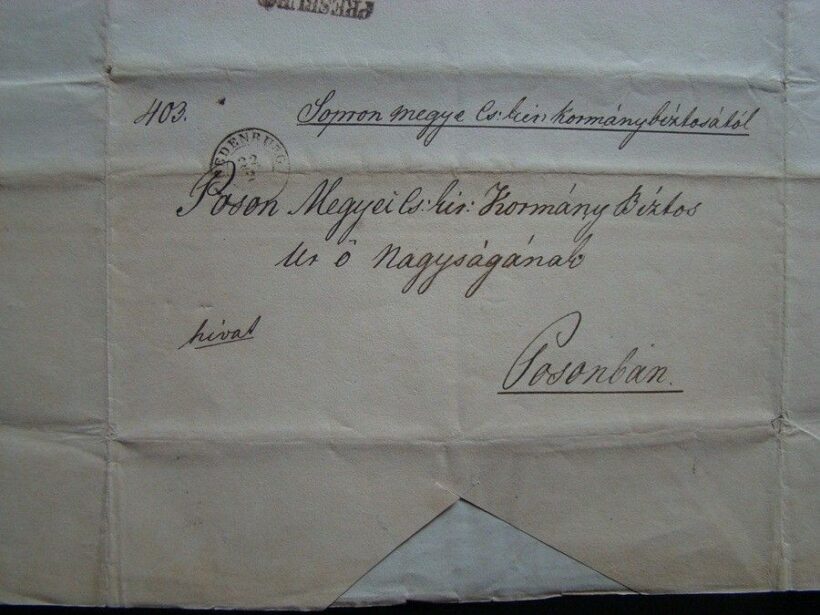 PRESBURG
403. Sopron megye Cs: kir: Kormánybíztosától
OEDENBURG
Poson Megyei Cs: kir: Kormány Bíztos
Ur ő Nagyságának
hival
Posonbán.